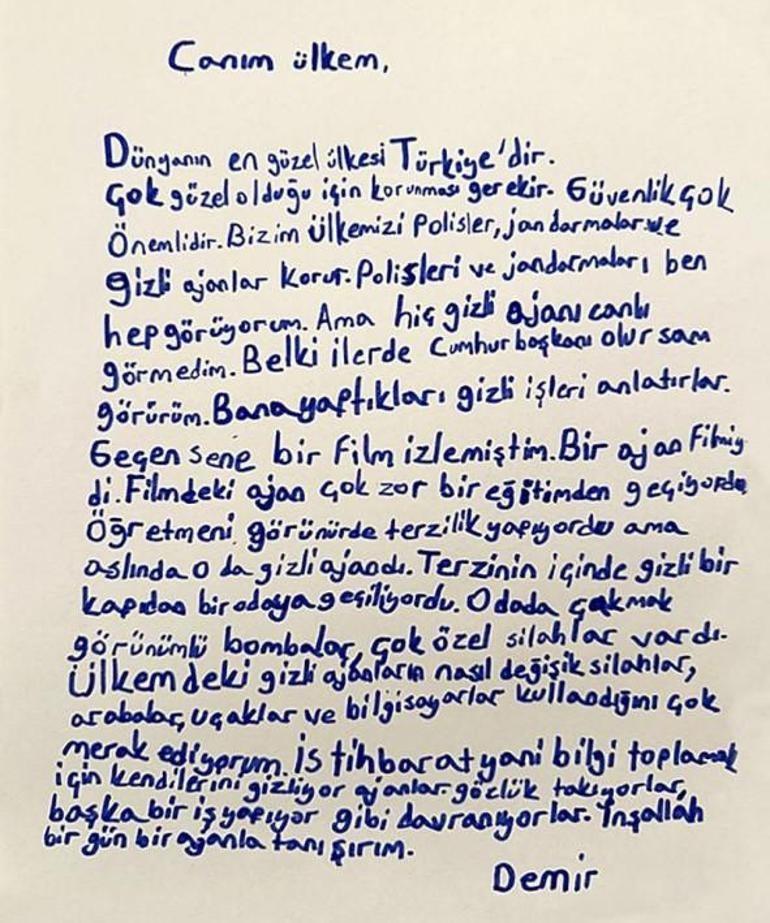 Canım ülkem,
Dünyanın en güzel ülkesi Türkiye'dir.
Çok güzel olduğu için korunması gerekir. Güvenlik çok
Önemlidir. Bizim ülkemizi Polisler, jandarmalar ve
gizli ajanlar korur. Polisleri ve jandarmaları ben
hep görüyorum. Ama hiç gizli ajanı canlı
görmedim. Belki ilerde Cumhurbaşkanı olursam
görürüm. Bana yaptıkları gizli işleri anlatırlar.
Geçen sene bir film izlemiştim. Bir ajan Filmiy
di. Filmdeki ajan çok zor bir eğitimden geçiyordu
Öğretmeni görünürde terzilik yapıyordu ama
aslında o da gizli ajandı. Terzinin içinde gizli bir
kapıdan bir odaya geçiliyordu. O dada çakmak
görünümlü bombalar, çok özel silahlar vardı.
Ülkemdeki gizli ajanların nasıl değişik silahlar,
arabalar, uçaklar ve bilgisayarlar kullandığını çok
merak ediyorum. İstihbarat yani bilgi toplamak
için kendilerini gizliyor ajanlar. gözlük takıyorlar,
başka bir iş yapıyor gibi davranıyorlar. İnşallah
bir gün bir ajanla tanışırım.
Demir